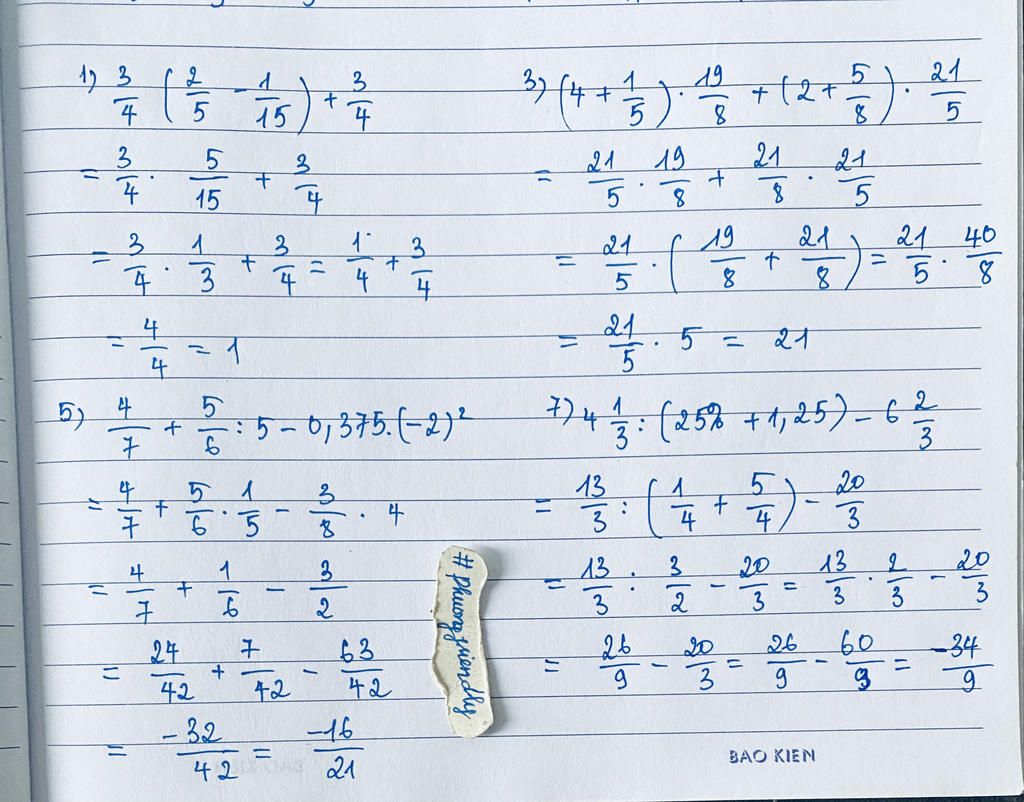 1) 3/4 (2/5 - 1/15) + 3/4
= 3/4 . 5/15 + 3/4
= 3/4 . 1/3 + 3/4 = 1/4 + 3/4
= 4/4 = 1
3) (4 + 1/5) . 19/8 + (2 + 5/8) . 21/5
= 21/5 . 19/8 + 21/8 . 21/5
= 21/5 . (19/8 + 21/8) = 21/5 . 40/8
= 21/5 . 5 = 21
5) 4/7 + 5/6 : 5 - 0,375.(-2)²
= 4/7 + 5/6 . 1/5 - 3/8 . 4
= 4/7 + 1/6 - 3/2
= 24/42 + 7/42 - 63/42
= -32/42 = -16/21
7) 4 1/3 : (25% + 1,25) - 6 2/3
= 13/3 : (1/4 + 5/4) - 20/3
= 13/3 : 3/2 - 20/3 = 13/3 . 2/3 - 20/3
= 26/9 - 20/3 = 26/9 - 60/9 = -34/9
#phuongfriendly
BAO KIEN